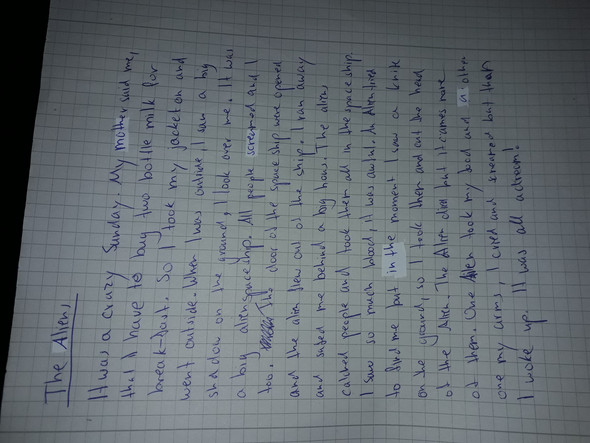 The Aliens
It was a crazy Sunday My mother said me,
that I have to buy two bottle milk for
break-fast. So I took my jacket on and
went outside. When I was outside it saw a big
shadow on the ground, I look over me. It was
a big alienspaceship. All people screamed and I
too. The door of the space ship were opened
and the alien flew out of the ship. I ran away
and safed me behind a big house. The aliens
catched people and took them all in the space ship.
I saw so much blood, it was awful. An Alien tried
to find me but in the moment I saw a knife
on the ground, so I took them and cut the head
of the Alien. The Alien died but it cames more
of them. One Alien took my food and a other
one my arms, I cried and screamed but then
I woke up. It was all a dream!